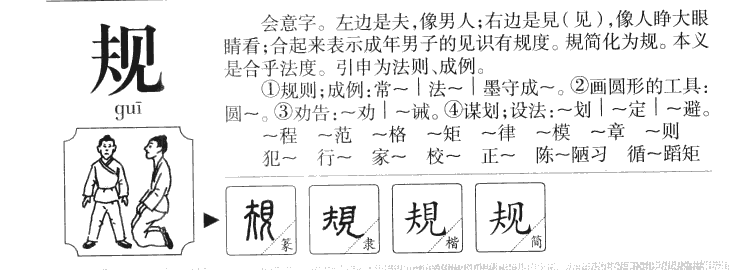 规
guī
会意字。左边是夫，像男人；右边是見（见），像人睁大眼
睛看；合起来表示成年男子的见识有规度。規简化为规。本义
是合乎法度。引申为法则、成例。
①规则；成例：常～｜法～｜墨守成～。②画圆形的工具：
圆～。③劝告：～劝｜～诫。④谋划；设法：～划｜～定｜～避。
～程 ～范 ～格 ～矩 ～律 ～模 ～章 ～则
犯～ 行～ 家～ 校～ 正～ 陈～陋习 循～蹈矩
規 篆
規 隶
規 楷
规 简